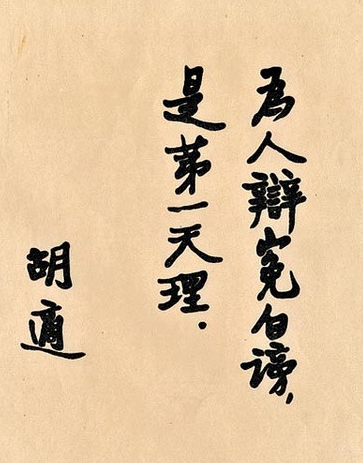 為人辯冤白謗,
是第一天理.
胡適